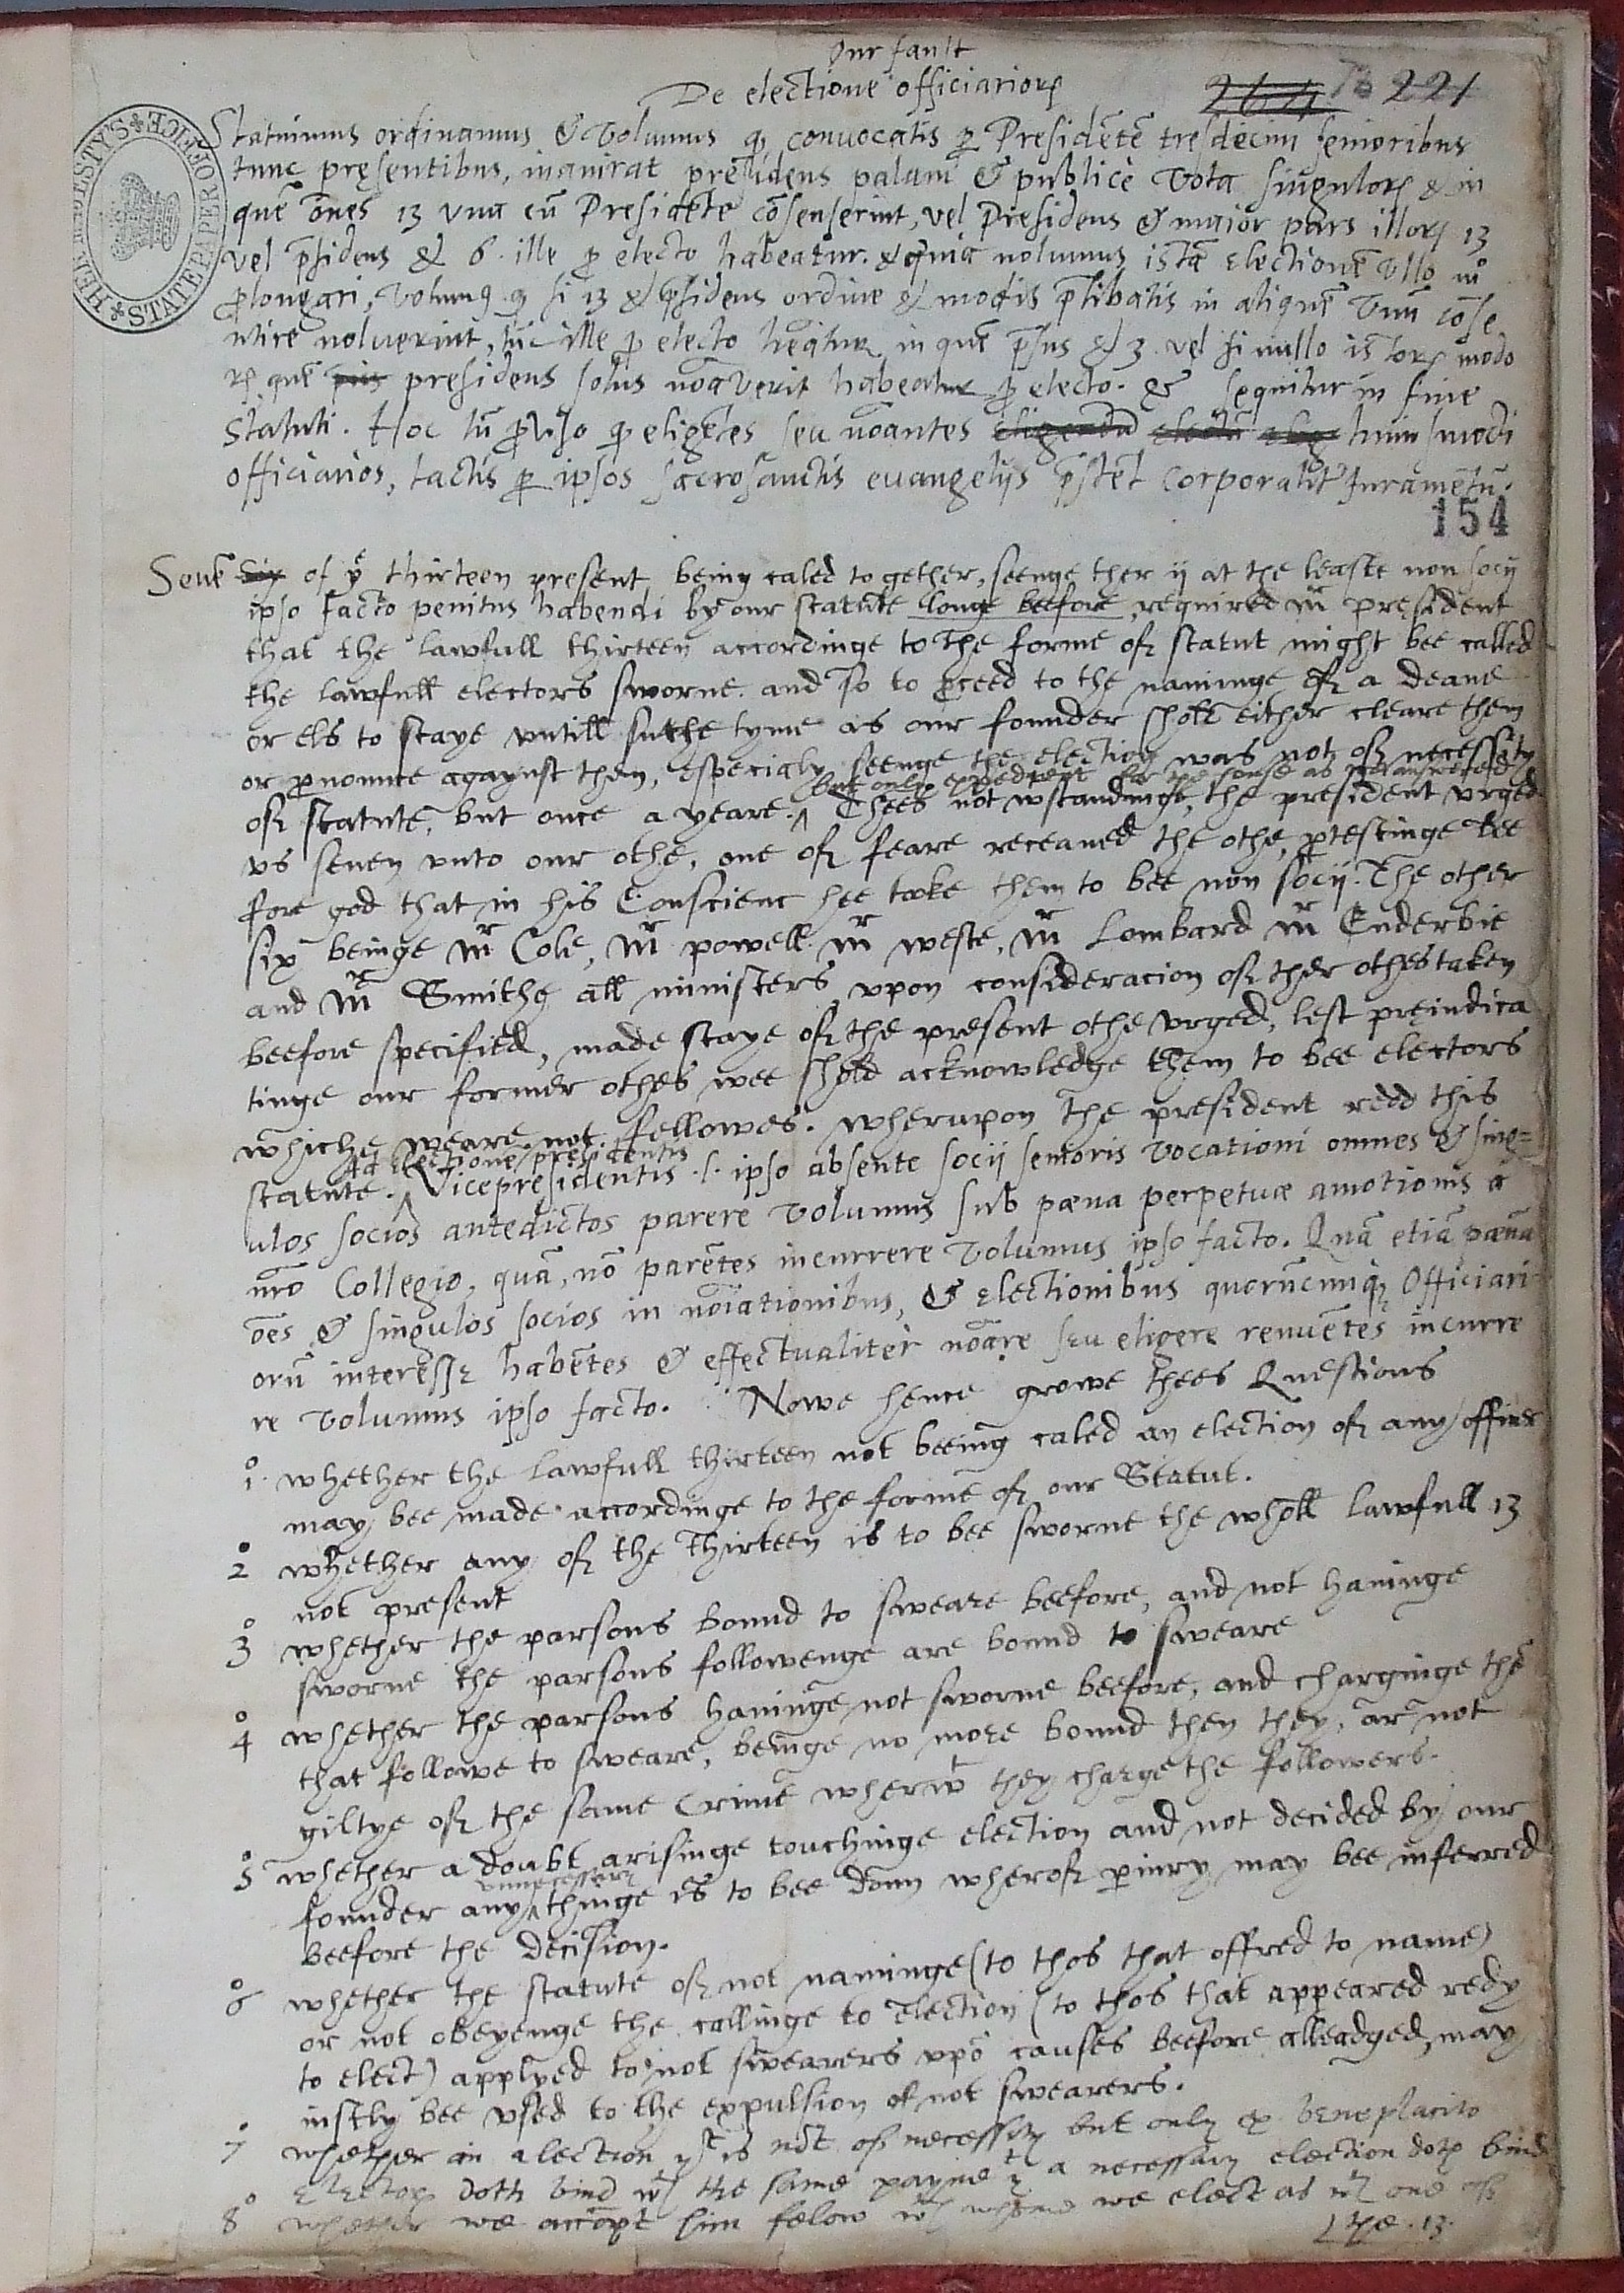 Our fault
De electione officiariorꝝ
264 73 221
HER MAJESTY'S STATE PAPER OFFICE
Statuimus ordinamus & Volumus qͥ convocatis ꝑ Presidētē tresdecim senioribus
tunc pręsentibus, inquirat presidens palam & publicè Vota singulorꝝ & in
quē ōnes 13 vna cū Presidēte cōsenserint, vel Presidens & maior pars illorꝝ 13
vel p̄sidens & 6. ille ꝓ electo habeatur. & quia nolumus istā Electionē vllo mͦ
ꝓlongari, Volumꝰ qͥ si 13 & p̄sidens ordine & modis p̄libatis in aliquē vnū cōse
ntire noluerint, tūc ille ꝓ electo heātur in quē p̄sus & 3. vel si nullo istorꝝ modo
rꝝ quē presidens solus noāverit habeatur ꝓ electo. & sequitur in fine
Statuti. Hoc tū ꝓviso qͥ eligētes seu noāntes eligendū electū huiusmodi
officiarios, tactis ꝑ ipsos sacrosanctis euangelijs p̄stēt corporalitᵉʳ Iuramētū.
154
Seuē six of yᵉ thirteen present being caled together, seenge ther ij at the leaste non socij
ipso facto penitus habendi by our statute longe beefore, required mʳ president
that the lawfull thirteen accordinge to the forme of statut might bee called
the lawfull electors sworne. and so to ꝓceed to the naminge of a deane
or els to staye vntill suche tyme as our founder shold either cleare them
or ꝓnounce agaynst them, especialy seenge the election was not of necessity
but only expedient for the house as was answered
of statute, but once a yeare. ^ Thees not wstandinge, the president vrged
vs seuen vnto our othe, one of feare receaued the othe, ꝓtestinge bee
fore god that in his Conscienc hee toke them to bee non socij. The other
six beinge mʳ Cole, mʳ powell mʳ weste, mʳ Lombard mʳ Enderbie
and mʳ Smithe all ministers vpon consideracion of ther othes taken
beefore specified, made staye of the present othe vrged, lest pręiudica
tinge our former othes wee shold acknowledge them to bee electors
whiche weare not fellowes. wherupon the president redd this
Ad electionē presidentis
statute. ^ Vicepresidentis .s. ipso absente socij senioris vocationi omnes & sing=
ulos socios antedictos parere volumus sub pæna perpetuæ amotionis a
nr̄o Collegio, quā, nō parētes incurrere volumus ipso facto. Quā etiā pænā
ōes & singulos socios in noīationibus, & electionibus quorūcumqꝫ Officiari
orū interesse habētes & effectualiter noāre seu eligere renuētes incurre
re volumus ipso facto. Nowe hence growe thees Questions
1 whether the lawfull thirteen not beeing caled an election of any officer
may bee made accordinge to the forme of our Statut.
2 whether any of the Thirteen is to bee sworne the wholl lawfull 13
not present
3 whether the parsons bound to sweare beefore, and not hauinge
sworne the parsons followenge are bound to sweare
4 whether the parsons hauinge not sworne beefore, and charginge thē
that followe to sweare, beinge no more bound then they, ar not
giltye of the same Crime wherwᵗ they charge the followers.
5 whether a doubt arisinge touchinge election and not decided by our
vnnecessary
founder any ^ thinge is to bee donn wherof ꝑiury may bee inferred
beefore the decision.
6 whether the statute of not naminge (to thos that offred to name)
or not obeyenge the callinge to Election (to thos that appeared redy
to elect) applyed to not swearers vpō causes beefore alleadged, may
iustly bee vsed to the expulsion of not swearers.
7 whether an election yᵗ is not of necessity but only ex beneplacito
Electorꝝ doth bind wᵗʰ the same payne yᵗ a necessary election doth bind
8 whether we accept him felow wᵗʰ whome we elect as wᵗʰ one of
the .13.